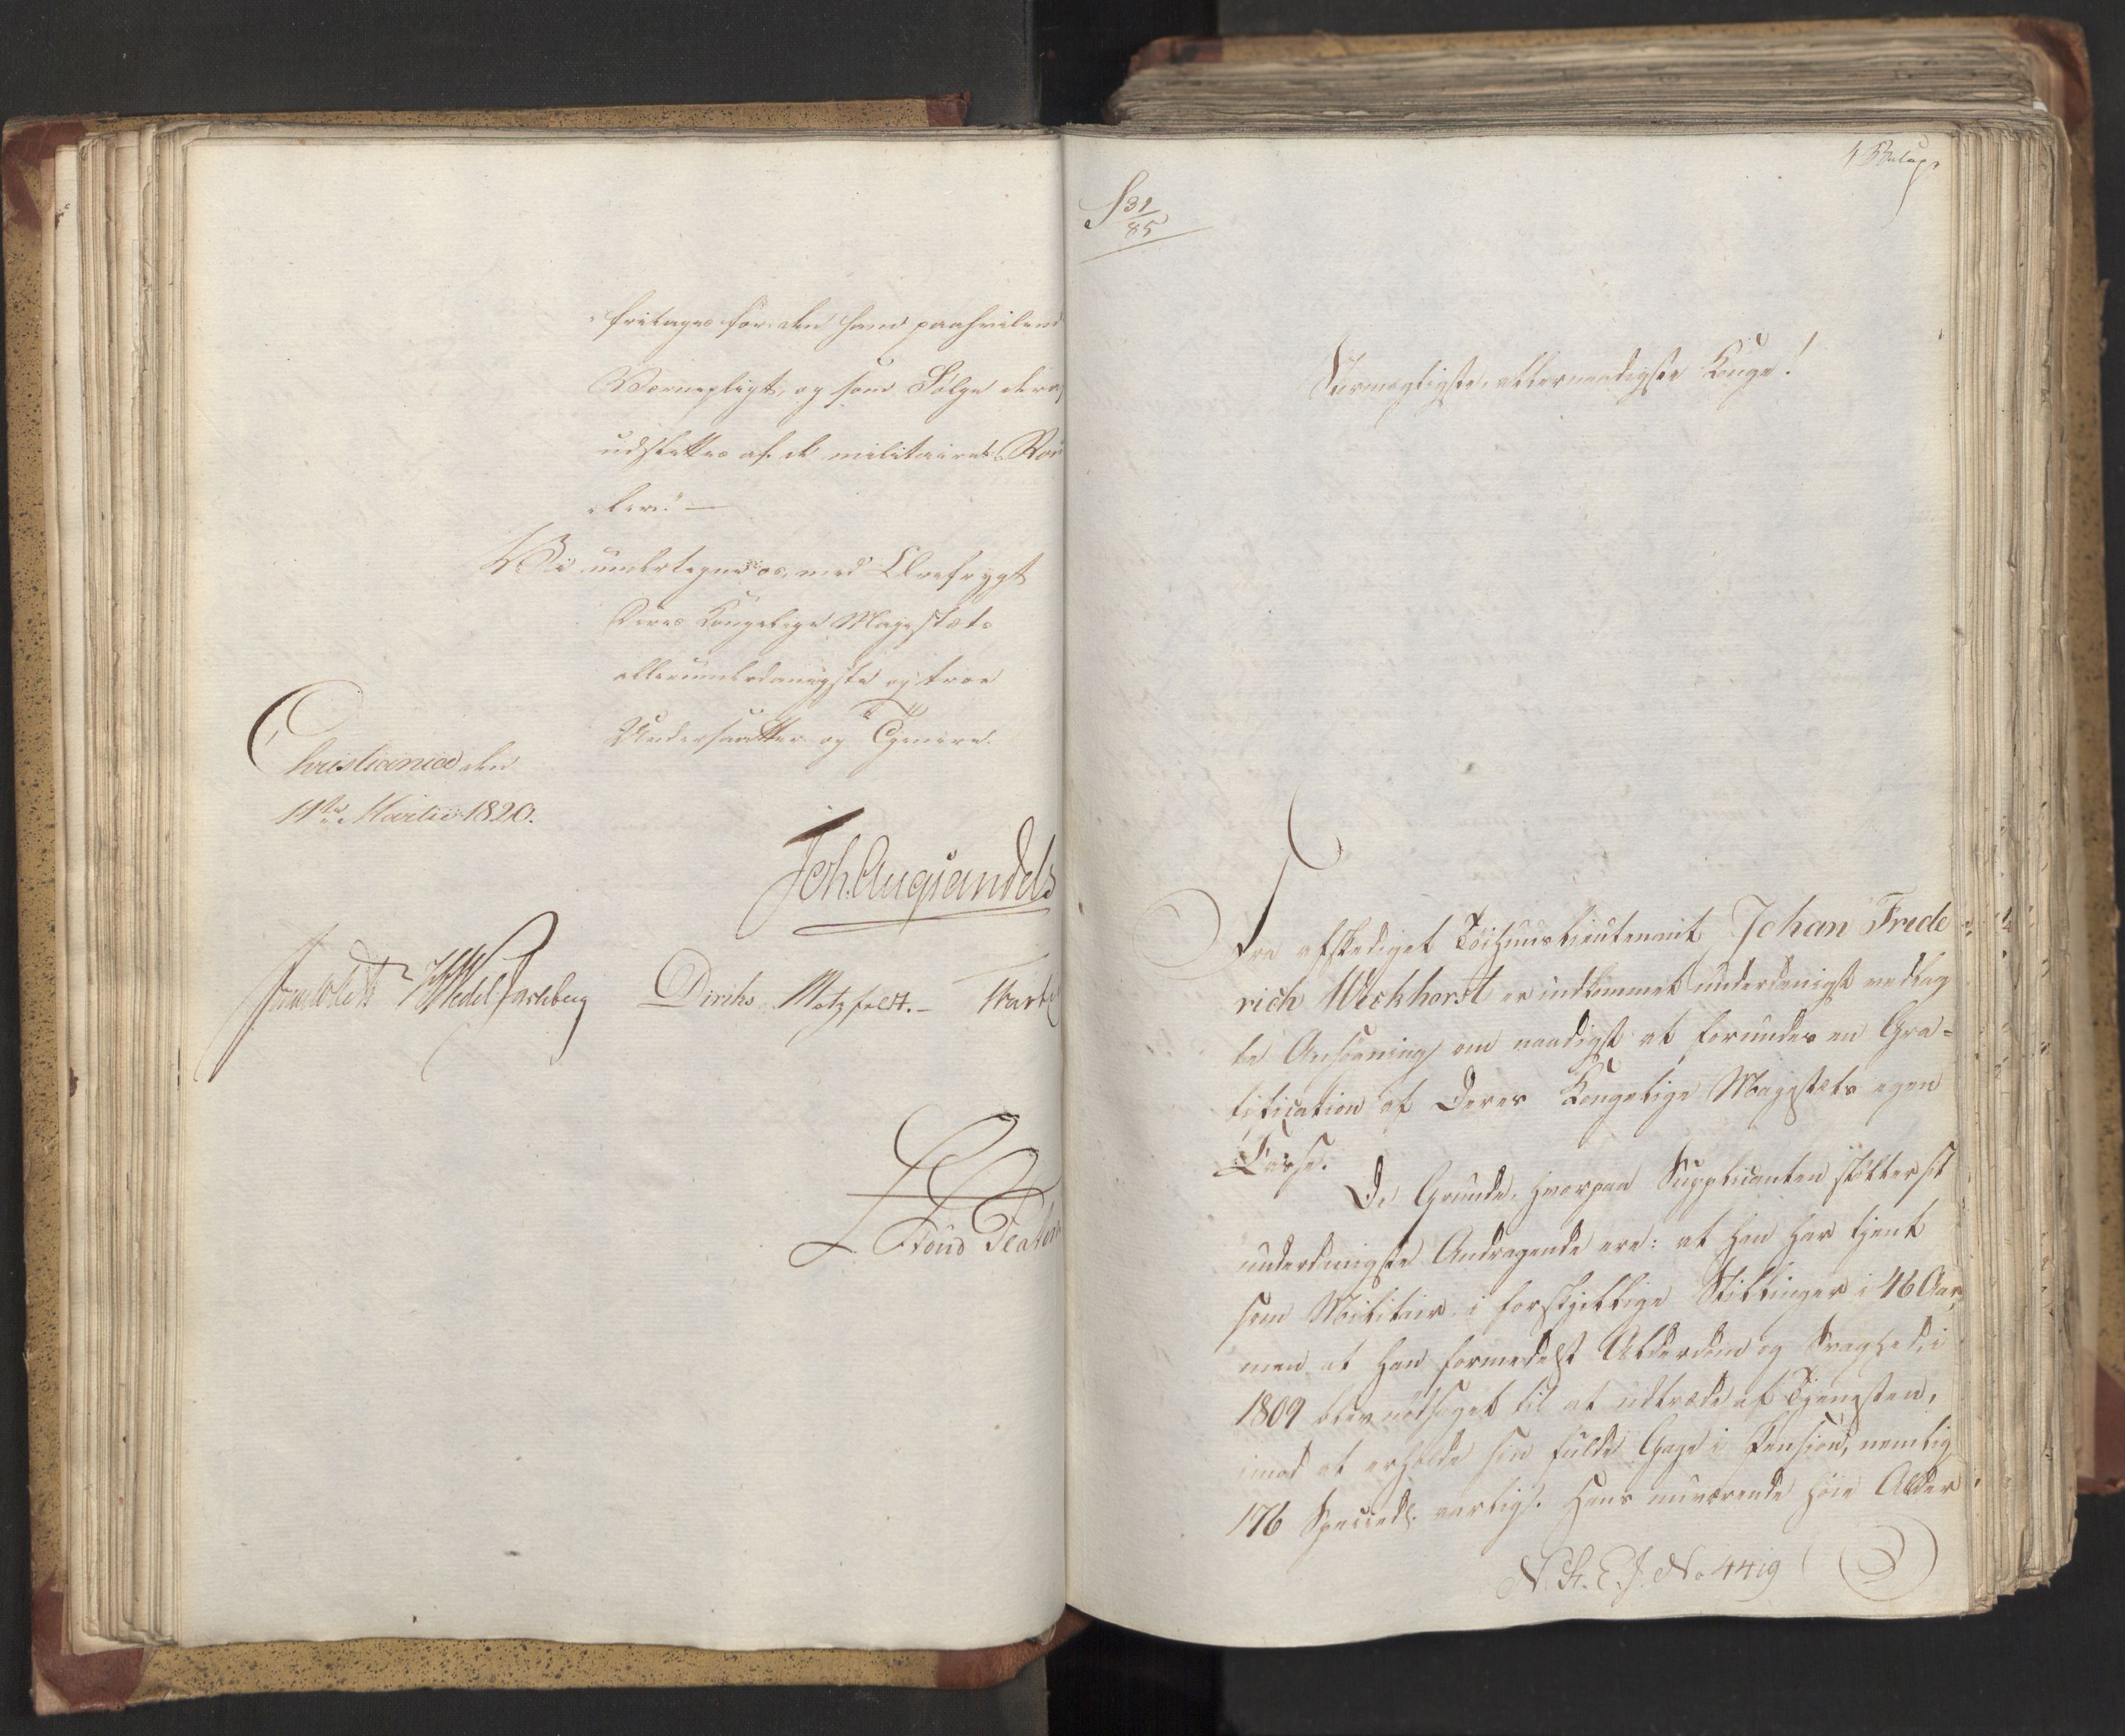 "fritages for den ham paahvilend
Værnepligt, og som Følge deraf
udslettes af de militaire Rul
"ler." —
Vi undertegne os med Ærefrygt
Deres Kongelige Majestæts
allerunderdanigste og troe
Undersaatter og Tjenere.
Christiania den
11te Martii 1820.
Joh. Aug Sandels
Sommerfeldt HWedel Jarlsberg Diriks Motzfeldt. —
4 Bilage
S 31/85
Stormægtigste, allernaadigste Konge!
Fra afskediget Töihuuslieutenant Johan Frede
rich Weckhorst er indkommet underdanigst vedlag
te Ansögning om naadigst at forundes en Gra=
tification af Deres Kongelige Majestæts egen
Casse.
De Grunde, hvorpaa Supplicanten stötter sit
underdanigste Andragende ere: at han har tjent
som Militair i forskjellige Stillinger i 46 Aar,
men at han formedelst Alderdom og Svaghed, i
1809 blev nödsaget til at udtræde af Tjenesten,
imod at erholde sin fulde Gage i Pension, nemlig
176 Speciedl. aarlig. Hans nuværende höie Alder
N. R. E. J. No 4419